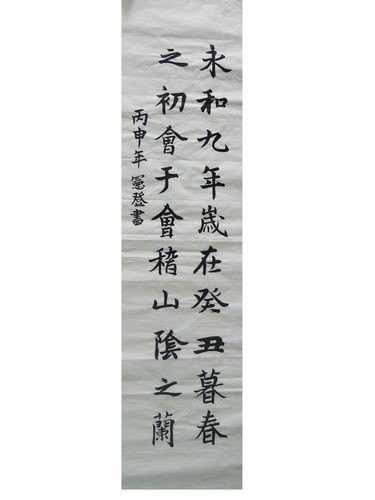 永和九年歲在癸丑暮春
之初會于會稽山陰之蘭
丙申年冕登書